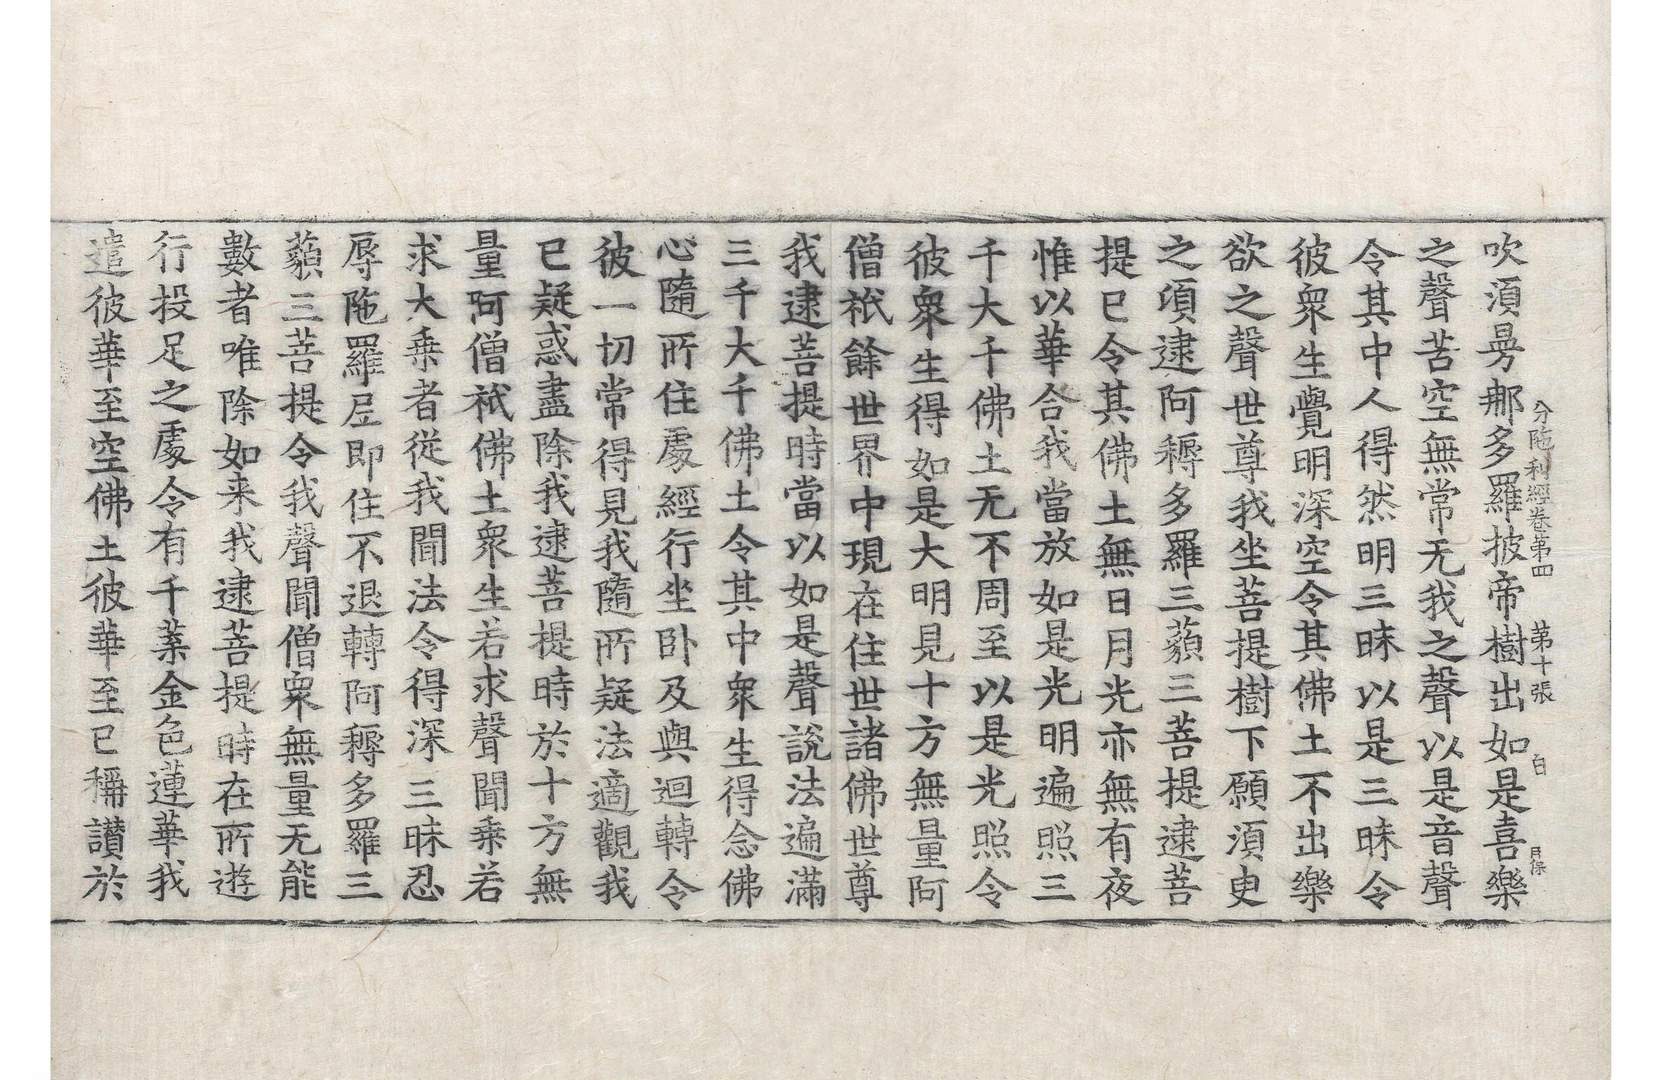 吹須曼那多羅披帝樹出如是喜樂
分陁利經卷第四 第十張 白
之聲苦空無常无我之聲以是音聲
令其中人得然明三昧以是三昧令
彼衆生覺明深空令其佛土不出樂
欲之聲世尊我坐菩提樹下願須臾
之須逮阿耨多羅三藐三菩提逮菩
提已令其佛土無日月光亦無有夜
惟以華合我當放如是光明遍照三
千大千佛土无不周至以是光照令
彼衆生得如是大明見十方無量阿
僧祇餘世界中現在住世諸佛世尊
我逮菩提時當以如是聲說法遍滿
三千大千佛土令其中衆生得念佛
心隨所住處經行坐卧及與迴轉令
彼一切常得見我隨所疑法適觀我
已疑惑盡除我逮菩提時於十方無
量阿僧祇佛土衆生若求聲聞乘若
求大乘者從我聞法令得深三昧忍
辱陁羅尼即住不退轉阿耨多羅三
藐三菩提令我聲聞僧衆無量无能
數者唯除如来我逮菩提時在所遊
行投足之處令有千葉金色蓮華我
遣彼華至空佛土彼華至已稱讃於